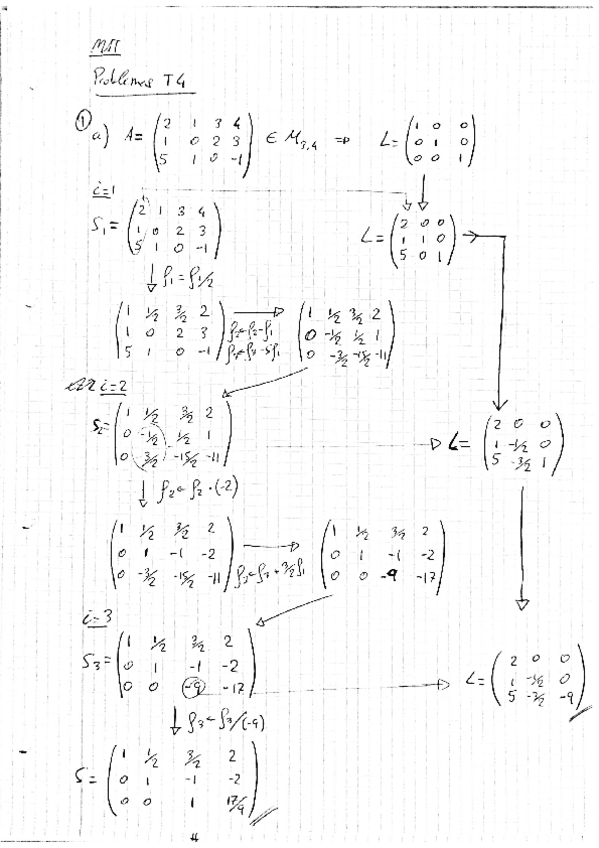 MII
Problemas T4
① a) A= (2 1 3 4 / 1 0 2 3 / 5 1 0 -1) ∈ M3,4 ⇒ L= (1 0 0 / 0 1 0 / 0 0 1)
i=1
S1= (2 1 3 4 / 1 0 2 3 / 5 1 0 -1) L= (2 0 0 / 1 1 0 / 5 0 1)
↓ f1=f1/2
(1 1/2 3/2 2 / 1 0 2 3 / 5 1 0 -1) → f2←f2-f1 f3←f3-5f1 (1 1/2 3/2 2 / 0 -1/2 1/2 1 / 0 -3/2 -15/2 -11)
i=2
S2= (1 1/2 3/2 2 / 0 -1/2 1/2 1 / 0 -3/2 -15/2 -11) → L= (2 0 0 / 1 -1/2 0 / 5 -3/2 1)
↓ f2←f2·(-2)
(1 1/2 3/2 2 / 0 1 -1 -2 / 0 -3/2 -15/2 -11) → f3←f3+3/2f1 (1 1/2 3/2 2 / 0 1 -1 -2 / 0 0 -9 -17)
i=3
S3= (1 1/2 3/2 2 / 0 1 -1 -2 / 0 0 -9 -17) → L= (2 0 0 / 1 -1/2 0 / 5 -3/2 -9)
↓ f3←f3/(-9)
S= (1 1/2 3/2 2 / 0 1 -1 -2 / 0 0 1 17/9)